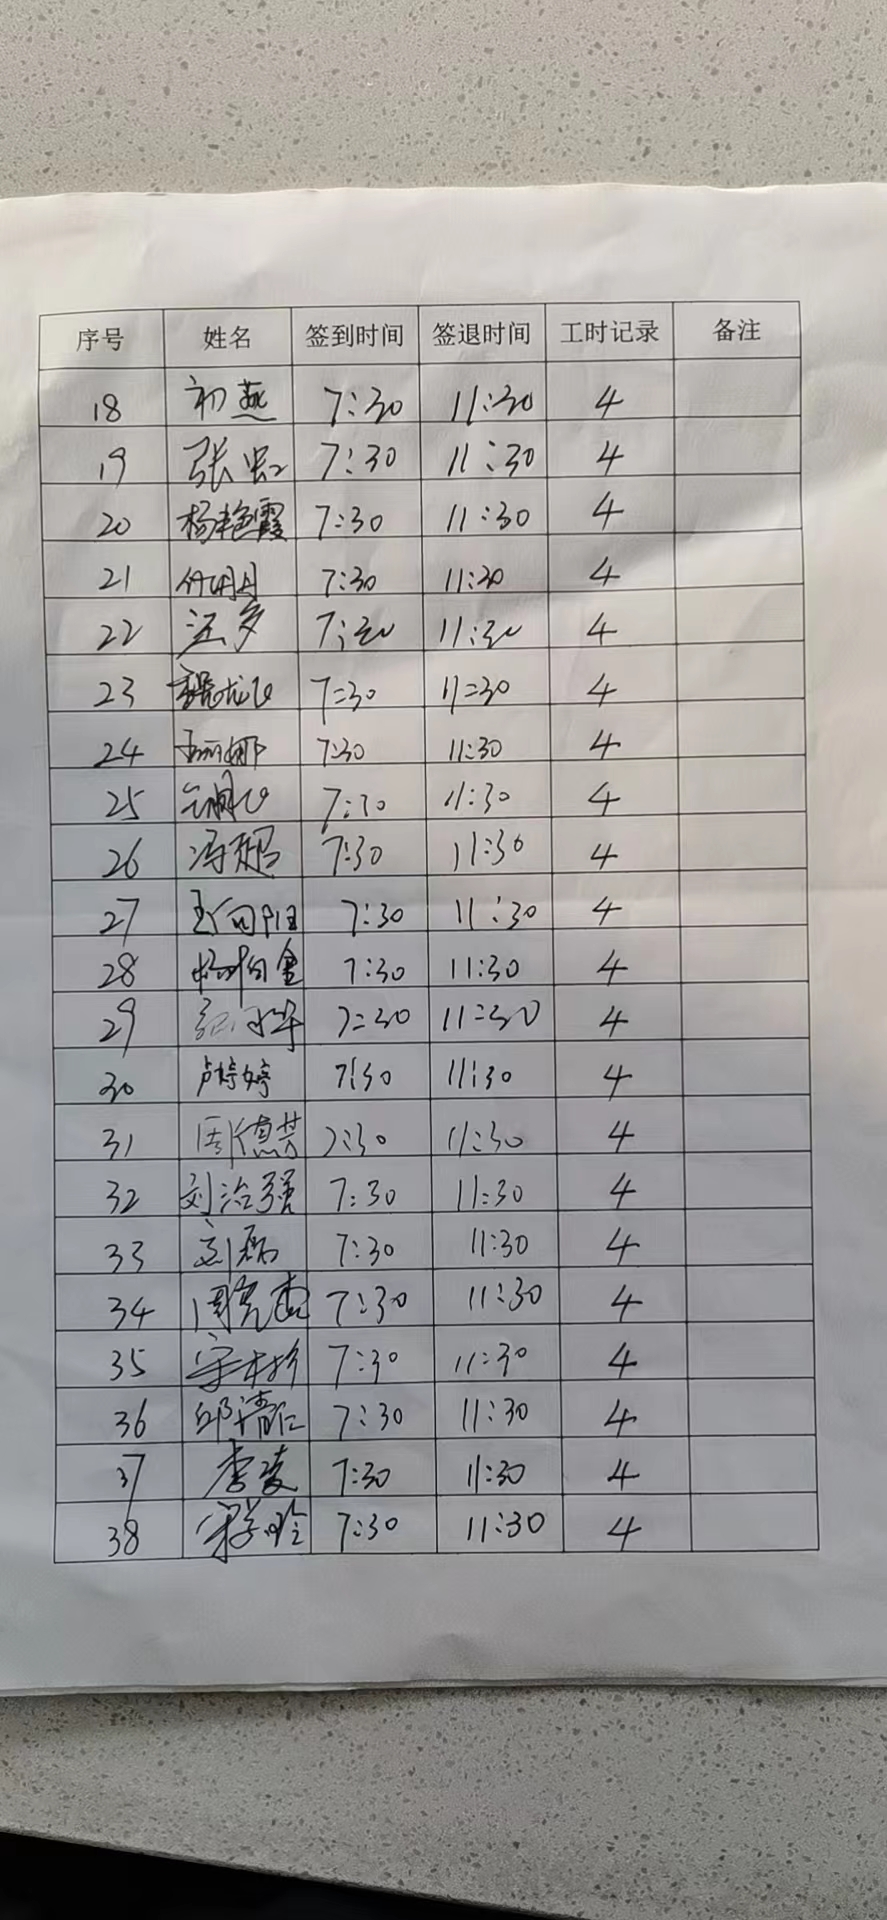 序号 姓名 签到时间 签退时间 工时记录 备注
18 初燕 7:30 11:30 4
19 张虹 7:30 11:30 4
20 杨艳霞 7:30 11:30 4
21 付明月 7:30 11:30 4
22 汪多 7:30 11:30 4
23 7=30 11=30 4
24 王丽娜 7:30 11:30 4
25 7:30 11:30 4
26 冯超 7:30 11:30 4
27 王向阳 7:30 11:30 4
28 7:30 11:30 4
29 7=30 11=30 4
30 卢婷婷 7:30 11:30 4
31 周德芳 7:30 11:30 4
32 刘治强 7:30 11:30 4
33 刘磊 7:30 11:30 4
34 7:30 11:30 4
35 7:30 11:30 4
36 邱清仁 7:30 11:30 4
37 李凌 7:30 11:30 4
38 7:30 11:30 4